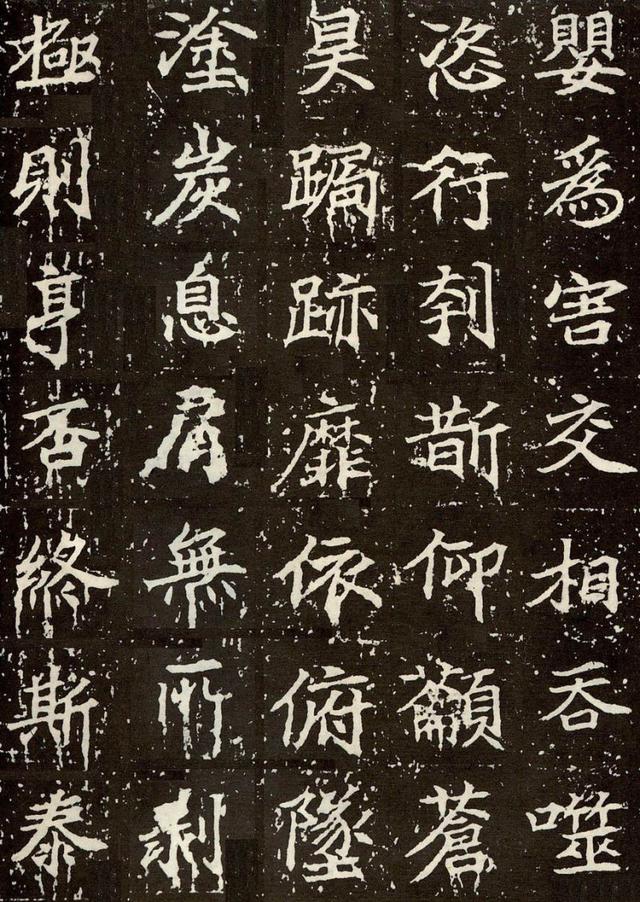 嬰爲害交相吞噬
恣行刳斮仰龥蒼
昊跼跡靡依俯墜
塗炭息肩無所剥
極則亨否終斯泰